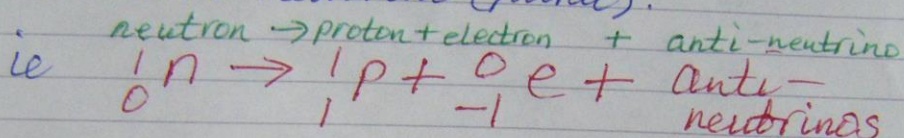 neutron → proton + electron + anti-neutrino
ie ¹₀n → ¹₁p + ⁰₋₁e + anti-
neutrinos